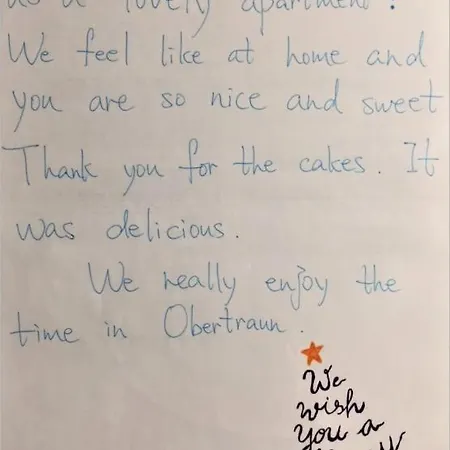 as a lovely apartment!
We feel like at home and
you are so nice and sweet
Thank you for the cakes. It
was delicious.
We really enjoy the
time in Obertraun.
We
wish
You a